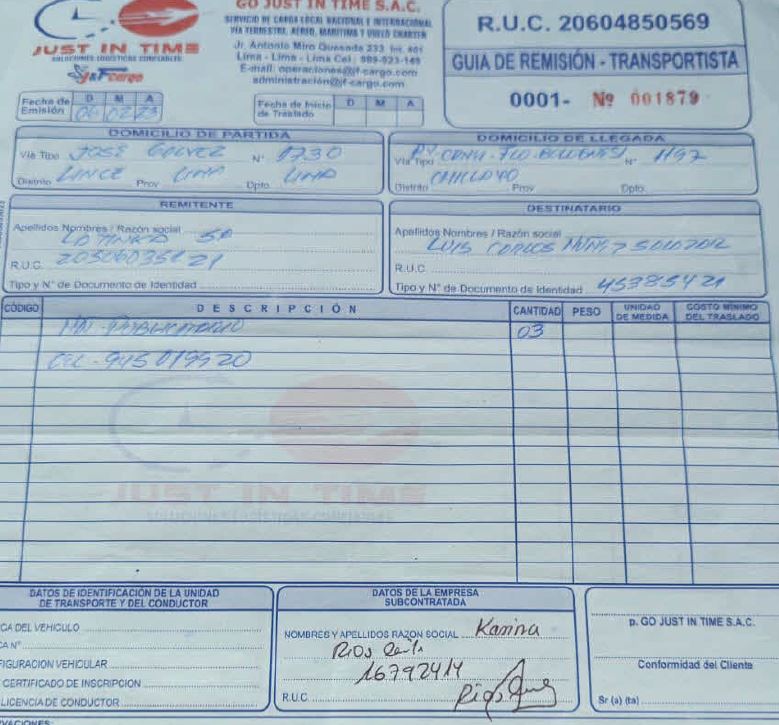 GO JUST IN TIME S.A.C.
SERVICIO DE CARGA LOCAL NACIONAL E INTERNACIONAL
VIA TERRESTRE, AEREO, MARITIMA Y VUELO CHARTER
Jr. Antonio Miro Quesada 233 Int. 601
Lima - Lima - Lima Cel.: 989-923-149
E-mail: operaciones@jf-cargo.com
administración@jf-cargo.com
JUST IN TIME
SOLUCIONES LOGISTICAS CONFIABLES
J&F cargo
R.U.C. 20604850569
GUIA DE REMISIÓN - TRANSPORTISTA
0001- Nº 001879
Fecha de Emisión D M A
02 23
Fecha de Inicio de Traslado D M A
DOMICILIO DE PARTIDA
Vía Tipo JOSE GALVEZ N° 1730
Distrito LINCE Prov LIMA Dpto LIMA
DOMICILIO DE LLEGADA
Vía Tipo N° 1197
Distrito CHICLAYO Prov Dpto.
REMITENTE
Apellidos Nombres / Razón social
LA TINKA SA
R.U.C. 20506035121
Tipo y N° de Documento de Identidad
DESTINATARIO
Apellidos Nombres / Razón social
LUIS CARLOS
R.U.C.
Tipo y N° de Documento de Identidad 45385421
CÓDIGO DESCRIPCIÓN CANTIDAD PESO UNIDAD DE MEDIDA COSTO MINIMO DEL TRASLADO
03
CEL - 945019920
JUST IN TIME
SOLUCIONES LOGISTICAS CONFIABLES
DATOS DE IDENTIFICACIÓN DE LA UNIDAD
DE TRANSPORTE Y DEL CONDUCTOR
CA DEL VEHICULO
CA N°
FIGURACIÓN VEHICULAR
CERTIFICADO DE INSCRIPCION
LICENCIA DE CONDUCTOR
DATOS DE LA EMPRESA
SUBCONTRATADA
NOMBRES Y APELLIDOS RAZON SOCIAL Karina
Rios
16792414
R.U.C
p. GO JUST IN TIME S.A.C.
Conformidad del Cliente
Sr (a) (ta)
VACIONES: